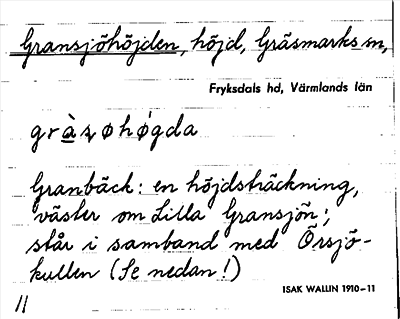 Gransjöhöjden, höjd, Gräsmarks sn,
Fryksdals hd, Värmlands län
Granbäck: en höjdsträckning,
väster om Lilla Gransjön;
står i samband med Örsjö-
kullen (Se nedan!)
ISAK WALLIN 1910-11
11